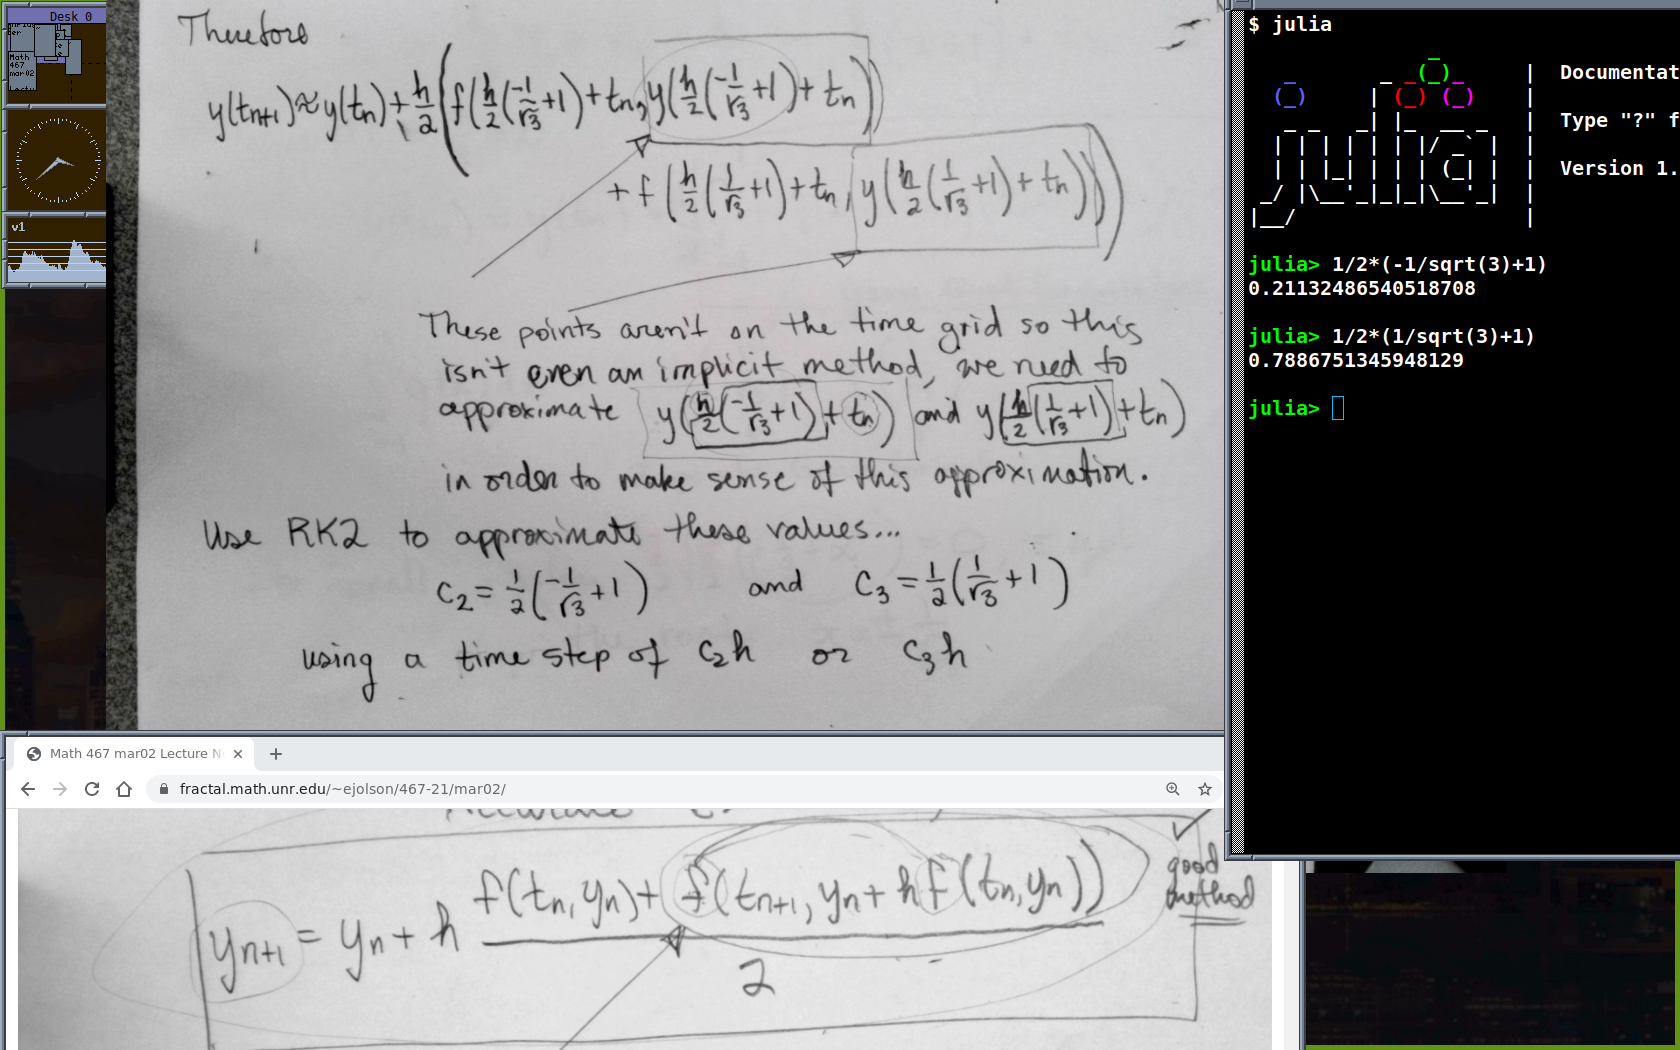 Desk 0
Math
467
mar02
v1
Therefore
y(tn+1)≈y(tn)+h/2(f(h/2(-1/√3+1)+tn, y(h/2(-1/√3+1)+tn))
+f(h/2(1/√3+1)+tn, y(h/2(1/√3+1)+tn)))
These points aren't on the time grid so this
isn't even an implicit method, we need to
approximate y(h/2(-1/√3+1)+tn) and y(h/2(1/√3+1)+tn)
in order to make sense of this approximation.
Use RK2 to approximate these values...
C2=1/2(-1/√3+1) and C3=1/2(1/√3+1)
using a time step of C2h or C3h
$ julia
Documentat
Type "?" f
Version 1.
julia> 1/2*(-1/sqrt(3)+1)
0.21132486540518708
julia> 1/2*(1/sqrt(3)+1)
0.7886751345948129
julia>
Math 467 mar02 Lecture N
fractal.math.unr.edu/~ejolson/467-21/mar02/
yn+1 = yn + h (f(tn,yn)+f(tn+1, yn+hf(tn,yn)))/2
good
method